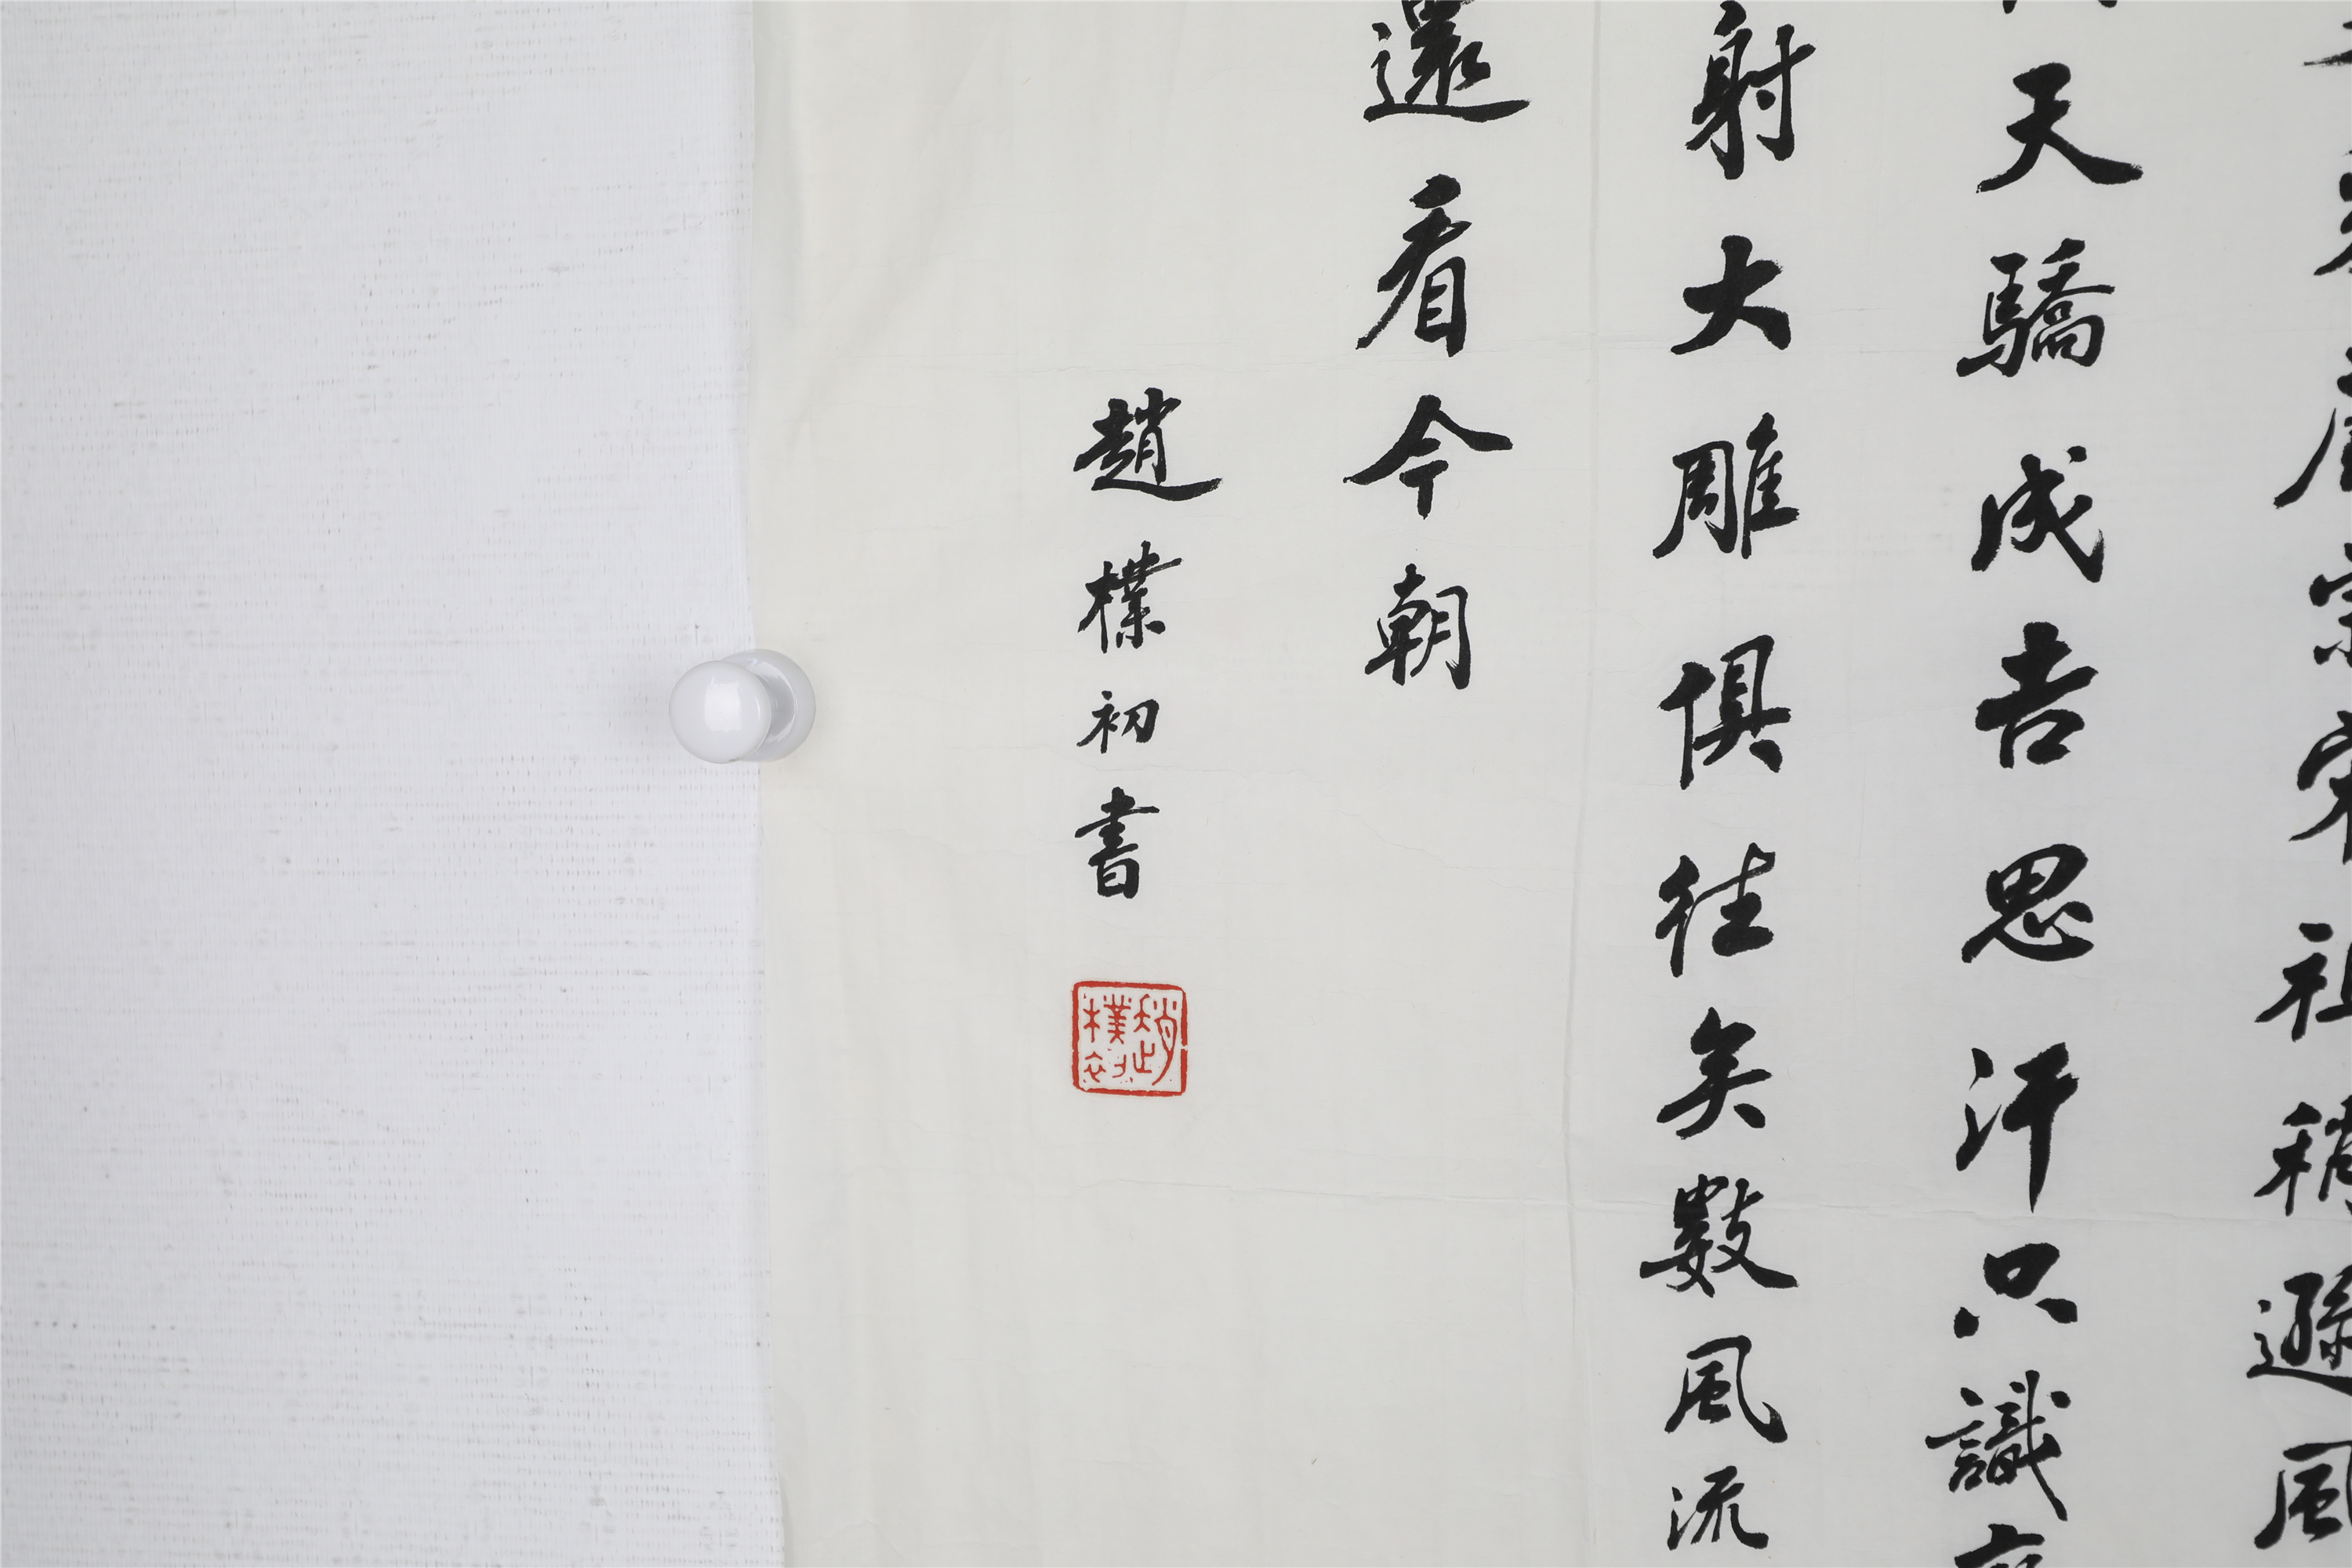 唐宗宋祖稍遜風
天驕成吉思汗只識
射大雕俱往矣數風流
還看今朝
趙樸初書
趙樸初